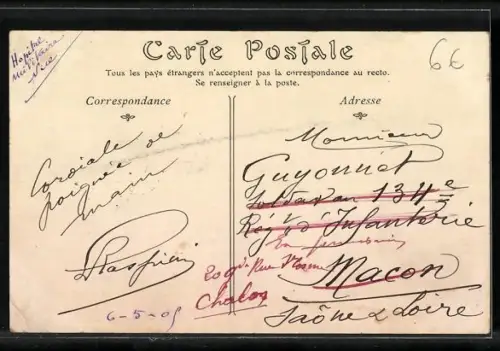 Hôpital
militaire
Nice
6€
Carte Postale
Tous les pays étrangers n'acceptent pas la correspondance au recto.
Se renseigner à la poste.
Correspondance
Adresse
Cordiale
poignée de
main
6-5-05
Monsieur
Guyonnet
Soldat au 134e
Rég d'Infanterie
Rue
Chalon
Macon
Saône & Loire